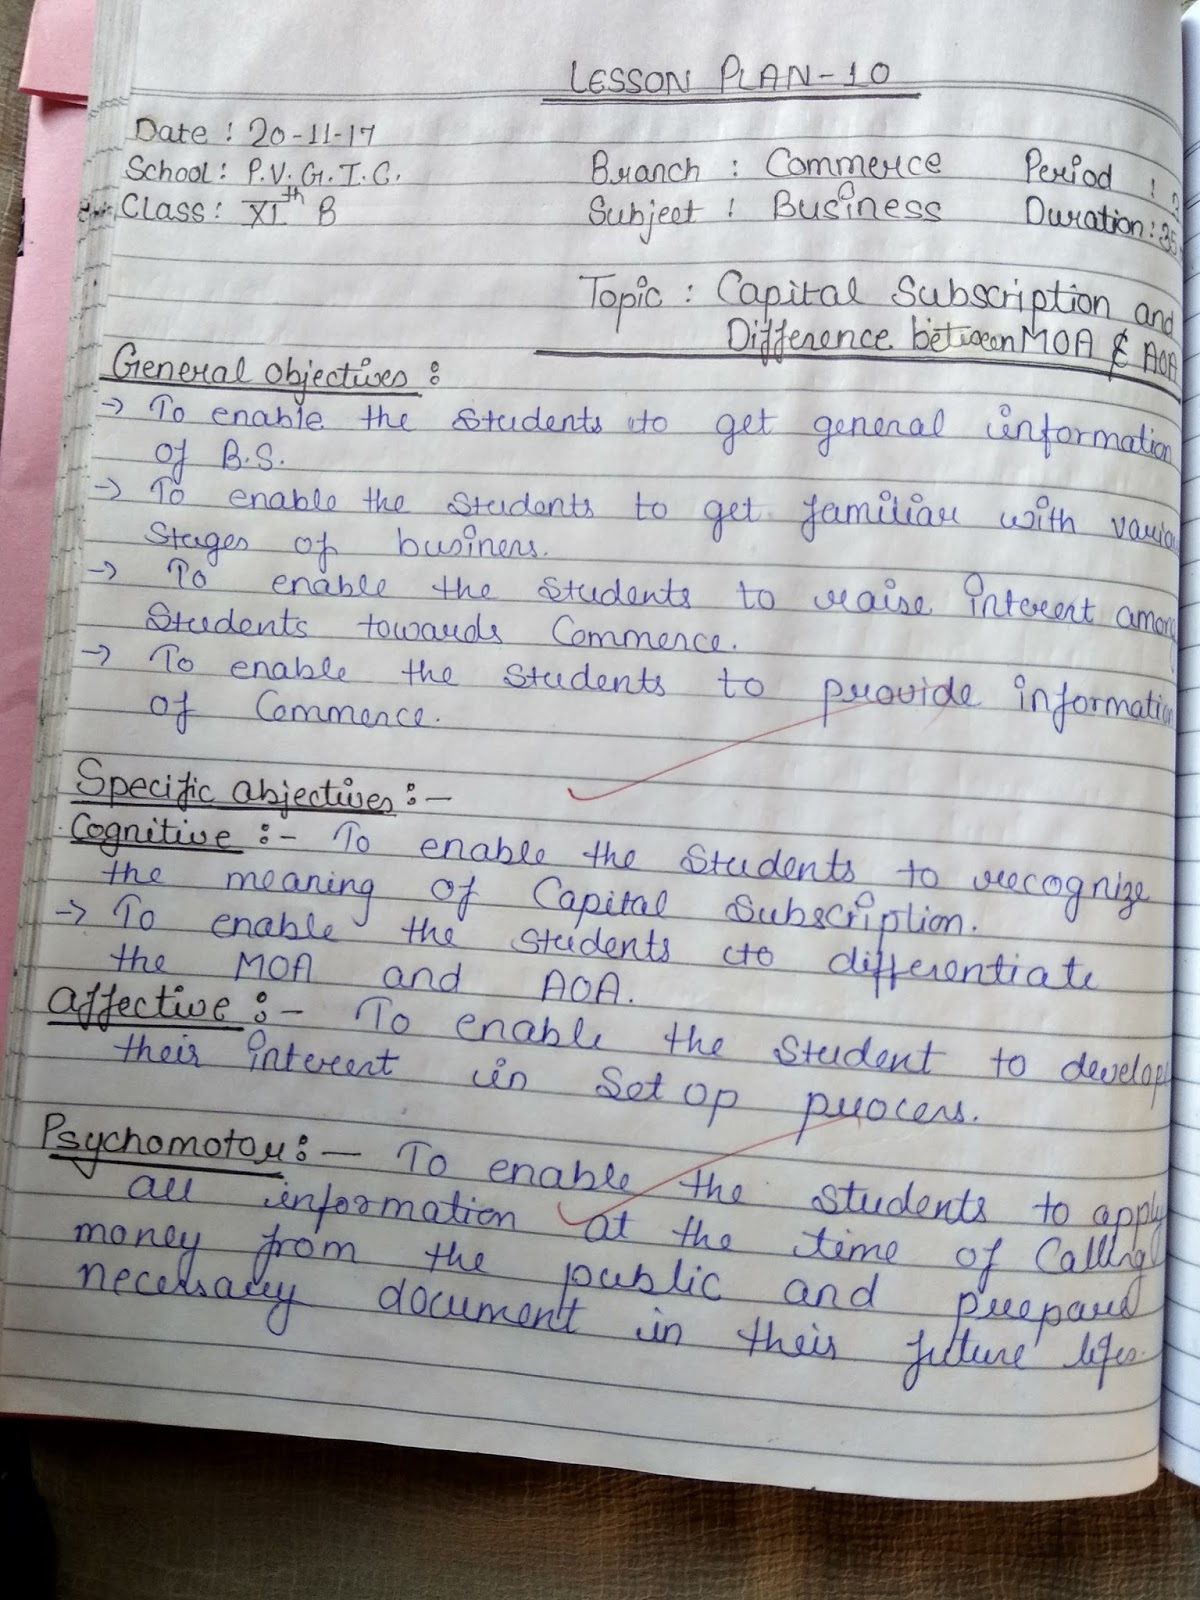 LESSON PLAN-10
Date : 20-11-17
School : P.V.G.I.C. Branch : Commerce Period :
Class : XIth B Subject : Business Duration : 35
Topic : Capital Subscription and
Difference between MOA & AOA
General objectives :
→ To enable the students to get general information
of B.S.
→ To enable the students to get familiar with various
Stages of business.
→ To enable the students to raise interest among
Students towards Commerce.
→ To enable the students to provide information
of Commerce.
Specific objectives :-
Cognitive :- To enable the students to recognize
the meaning of Capital Subscription.
→ To enable the students to differentiate
the MOA and AOA.
Affective :- To enable the student to develop
their interest in Set op process.
Psychomotor :- To enable the students to apply
all information at the time of Calling
money from the public and prepare
necessary document in their future lifes.